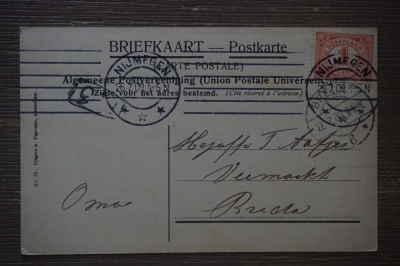 BRIEFKAART — Postkarte
(CARTE POSTALE)
Algemeene Postvereeniging (Union Postale Universelle)
Zijde voor het adres bestemd. (Côté réservé à l'adresse.)
NEDERLAND
NIJMEGEN
NIJMEGEN
Mejuffr T. Aafjes
Veemarkt
Breda
Oma